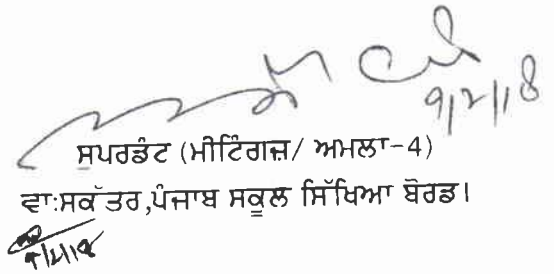 9/2/18
ਸੁਪਰਡੰਟ (ਮੀਟਿੰਗਜ਼/ ਅਮਲਾ-4)
ਵਾ:ਸਕੱਤਰ,ਪੰਜਾਬ ਸਕੂਲ ਸਿੱਖਿਆ ਬੋਰਡ।
9/2/18